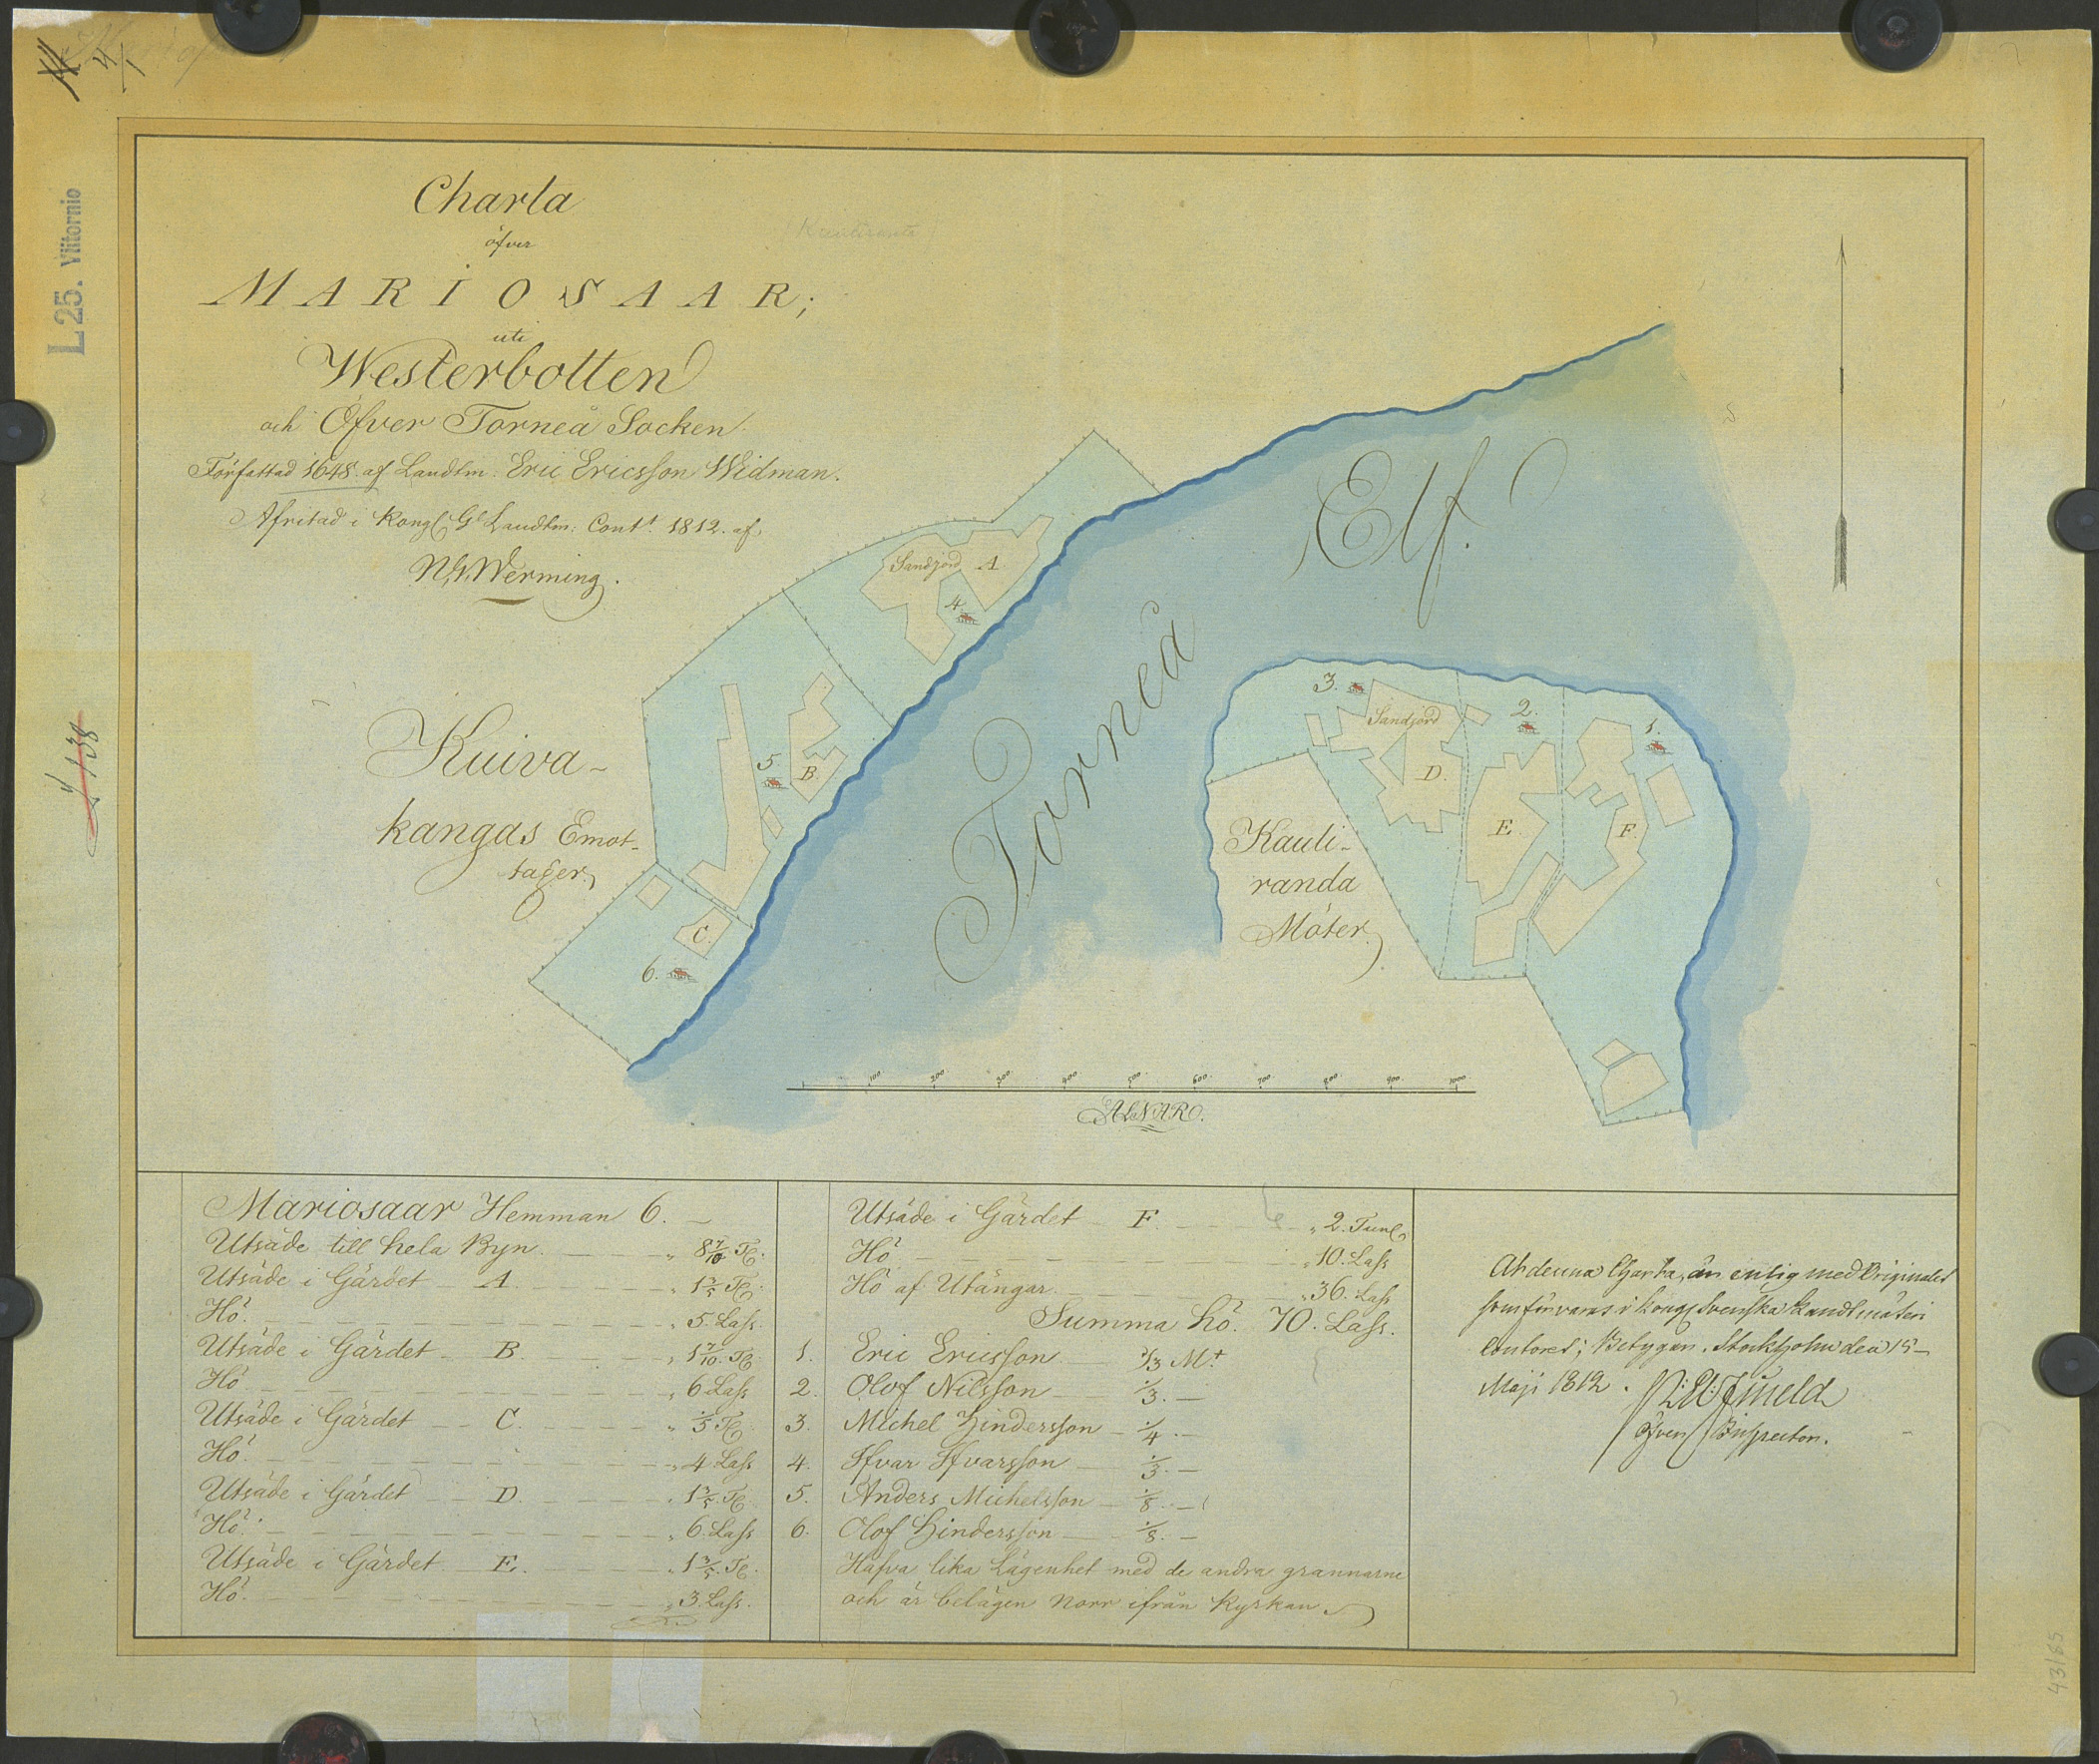 4/1
L 25. Viitornio
L 138
Charta
öfver
MARIOSAAR;
uti
Westerbotten
och Öfver Torneå Socken.
Författad 1648. af Landtm: Eric Ericsson Widman.
Afritad i Kongl. Gl Landtm: Contt. 1812. af
Werming.
Elf.
Torneå
Sandjord A
4.
5.
B.
C.
6.
Kuiva-
kangas Emot-
tager.
3.
Sandjord
D.
2.
E.
1.
F.
Kauli-
randa
Möter.
100 200 300 400 500 600 700 800 900 1000
ALNAR.
Mariosaar Hemman 6. —
Utsäde till hela Byn. „ 8 7/10 Tl.
Utsäde i Gärdet A. „ 1 3/5 Tl.
Hö. „ 5. Lass.
Utsäde i Gärdet B. „ 1 7/10 Tl.
Hö „ 6 Lass
Utsäde i Gärdet C. Tl.
Hö. „ 4 Lass
Utsäde i Gärdet D. „ 1 3/5 Tl.
Hö. „ 6. Lass
Utsäde i Gärdet E. „ 1 3/5 Tl.
Hö. „ 3. Lass.
Utsäde i Gärdet F. „ 2. Tunl
Hö „ 10. Lass
Hö af Utängar „ 36. Lass
Summa hö. 70. Lass.
1. Eric Ericsson 1/3 Mt
2. Olof Nilsson 1/3. —
3. Michel Hindersson 1/4. —
4. Ifvar Ifvarsson 1/3. —
5. Anders Michelsson 1/8. —
6. Olof Hindersson 1/8. —
Hafva lika Lägenhet med de andra grannarne
och är belägen Norr ifrån Kyrkan.
At denna Charta, är enlig med Originalet
som förvaras i Kongl Svenska Landtmäteri
Contoret; Betygar. Stockholm den 15
Maji 1812.
Inspector.
43/85